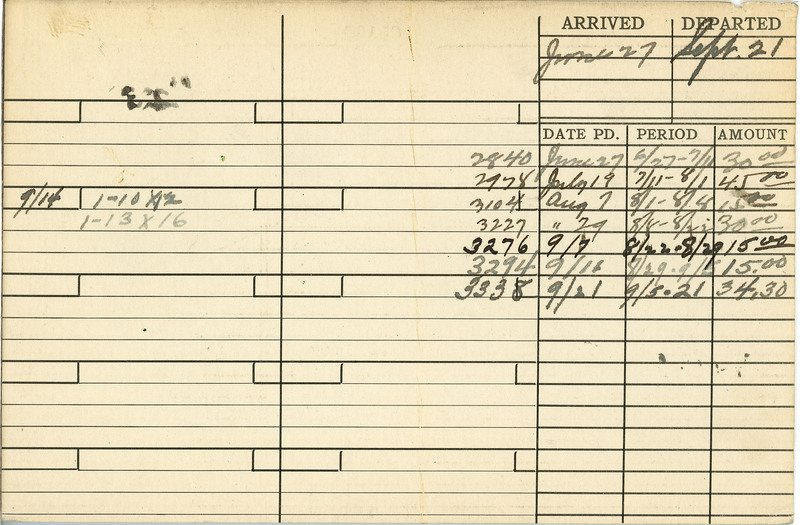 ARRIVED DEPARTED
June 27 Sept. 21
DATE PD. PERIOD AMOUNT
2840 June 27 6/27-7/11 30 00
2978 July 19 7/11-8/1 45 00
9/14 1-10 X 12 3104 Aug 7 8/1-8/8 15 00
1-13 X 16 3227 " 29 8/8-8/22 30 00
3276 9/7 8/22-8/29 15 00
3294 9/16 8/29-9/5 15.00
3338 9/21 9/5-21 34.30